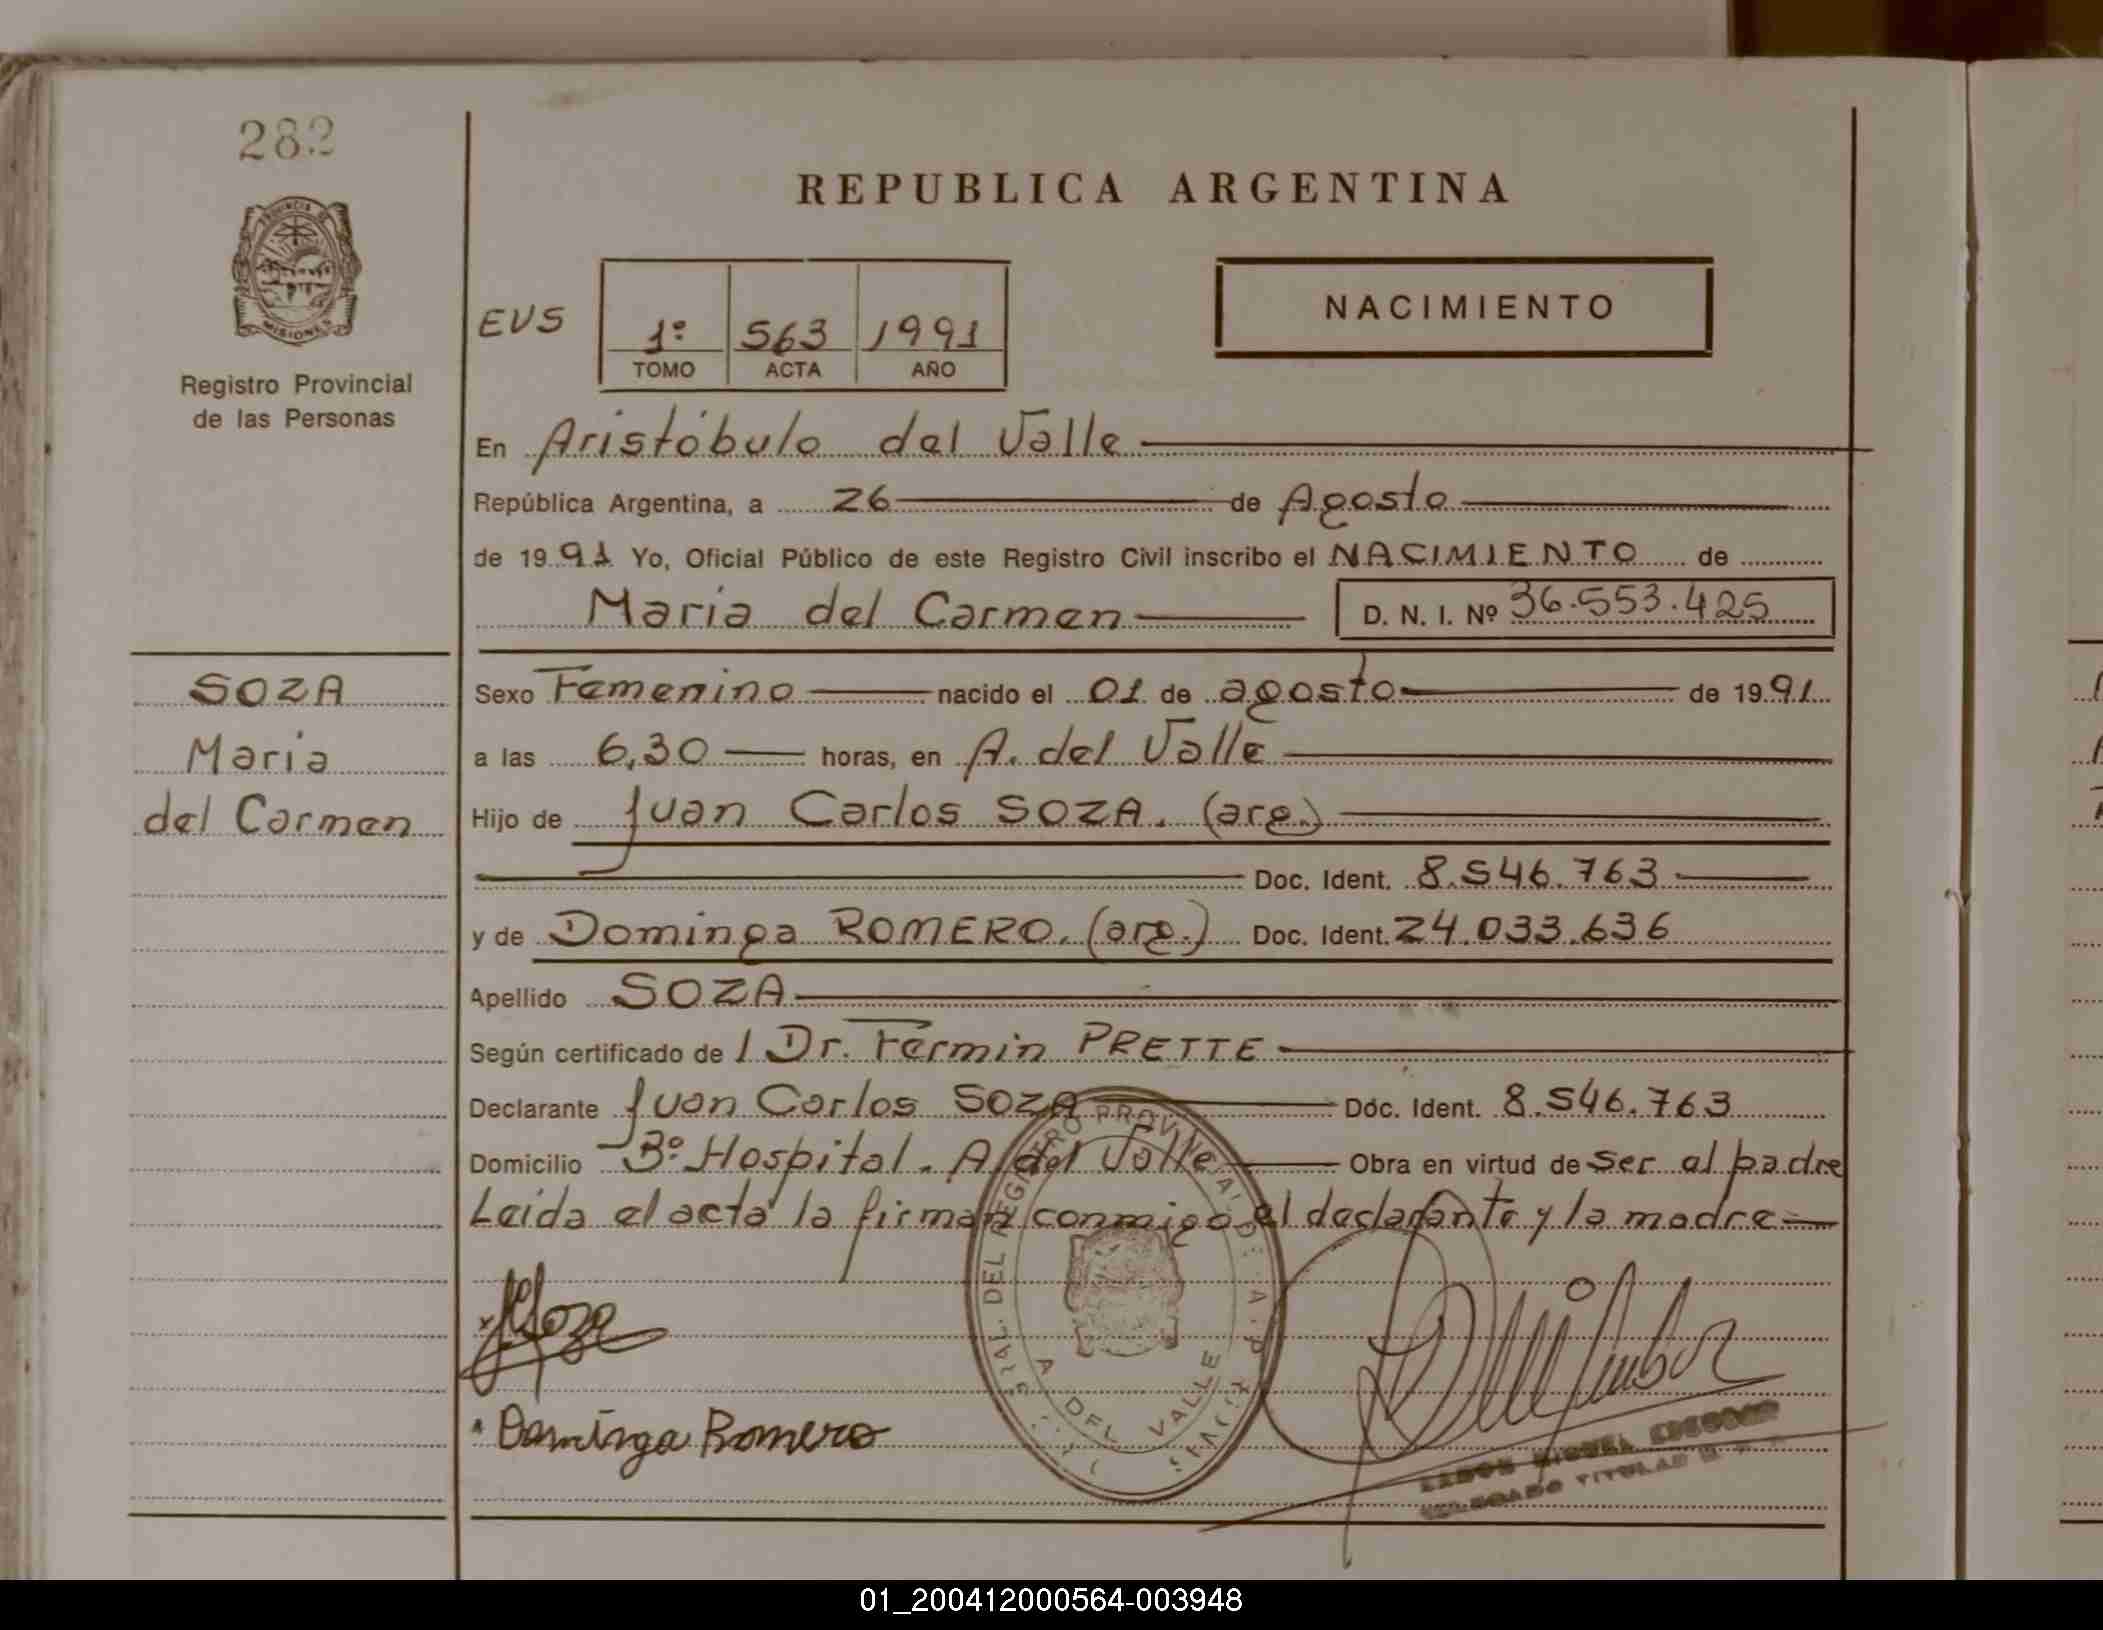 282
PROVINCIA DE
MISIONES
Registro Provincial
de las Personas
REPUBLICA ARGENTINA
EVS
1º 563 1991
TOMO ACTA AÑO
NACIMIENTO
En Aristóbulo del Valle
República Argentina, a 26 de Agosto
de 1991 Yo, Oficial Público de este Registro Civil inscribo el NACIMIENTO de
Maria del Carmen D. N. I. Nº 36.553.425
SOZA
Maria
del Carmen
Sexo Femenino nacido el 01 de agosto de 1991
a las 6,30 horas, en A. del Valle
Hijo de Juan Carlos SOZA. (arg.)
Doc. Ident. 8.546.763
y de Dominga ROMERO. (arg.) Doc. Ident. 24.033.636
Apellido SOZA
Según certificado de / Dr. Fermin PRETTE
Declarante Juan Carlos SOZA Doc. Ident. 8.546.763
Domicilio Bº Hospital. A. del Valle Obra en virtud de ser el padre
Leida el acta la firman conmigo el declarante y la madre
DEL REGISTRO PROVINCIAL DE
A. DEL VALLE
JCSoza
Dominga Romero
MIGUEL
TITULAR
01_200412000564-003948